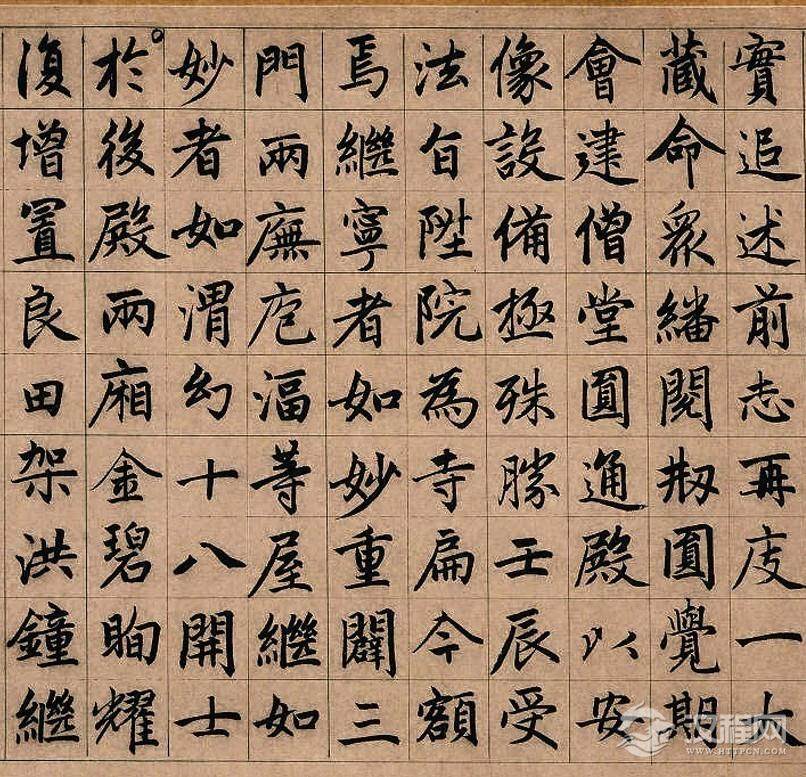 實追述前志再庋一大
藏命眾繙閱刱圓覺期
會建僧堂圓通殿以安
像設備極殊勝壬辰受
法旨陞院為寺扁今額
焉繼寧者如妙重闢三
門兩廡庖湢等屋繼如
妙者如渭幻十八開士
於後殿兩廂金碧眴耀
復增置良田架洪鐘繼
汉程网
WWW.HTTPCN.COM